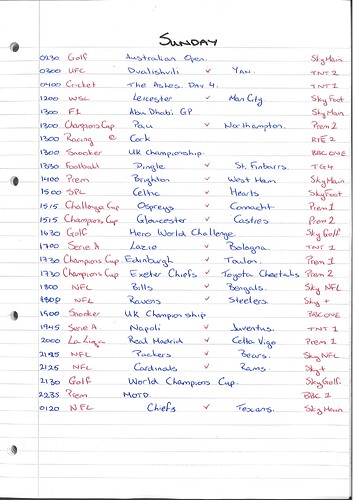 SUNDAY
0230 Golf Australian Open. Sky Main
0300 UFC Dvalishvili v Yan. TNT 2
0400 Cricket The Ashes. Day 4. TNT 1
1200 WSL Leicester v Man City Sky Foot
1300 F1 Abu Dhabi GP Sky Main
1300 Champions Cup Pau v Northampton. Prem 2
1300 Racing @ Cork RTE 2
1300 Snooker UK Championship. BBC ONE
1330 Football Dingle v St. Finbarrs. TG4
1400 Prem Brighton v West Ham Sky Main
1500 SPL Celtic v Hearts Sky Foot
1515 Challenge Cup Ospreys v Connacht Prem 1
1515 Champions Cup Gloucester v Castres Prem 2
1630 Golf Hero World Challenge Sky Golf
1700 Serie A Lazio v Bologna TNT 1
1730 Champions Cup. Edinburgh v Toulon. Prem 1
1730 Champions Cup Exeter Chiefs v Toyota Cheetahs Prem 2
1800 NFL Bills v Bengals. Sky NFL
1800 NFL Ravens v Steelers. Sky +
1900 Snooker UK Championship BBC ONE
1945 Serie A. Napoli v Juventus. TNT 1
2000 La Liga Real Madrid v Celta Vigo Prem 1
2125 NFL Packers v Bears. Sky NFL
2125 NFL Cardinals v Rams. Sky +
2130 Golf World Champions Cup. Sky Golf.
2235 Prem MOTD. BBC 1
0120 NFL Chiefs v Texans. Sky Main